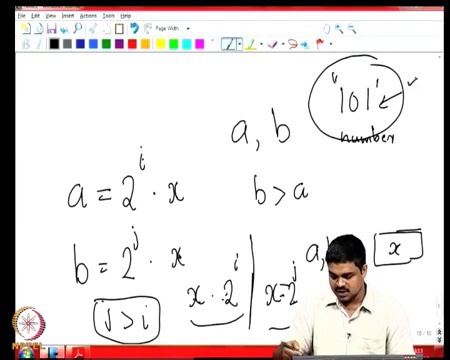 File Edit View Insert Actions Tools Help
Page Width
"101"
number
a, b
a = 2^i · x
b > a
b = 2^j · x
a, b
x
x · 2^i | x · 2^j
j > i